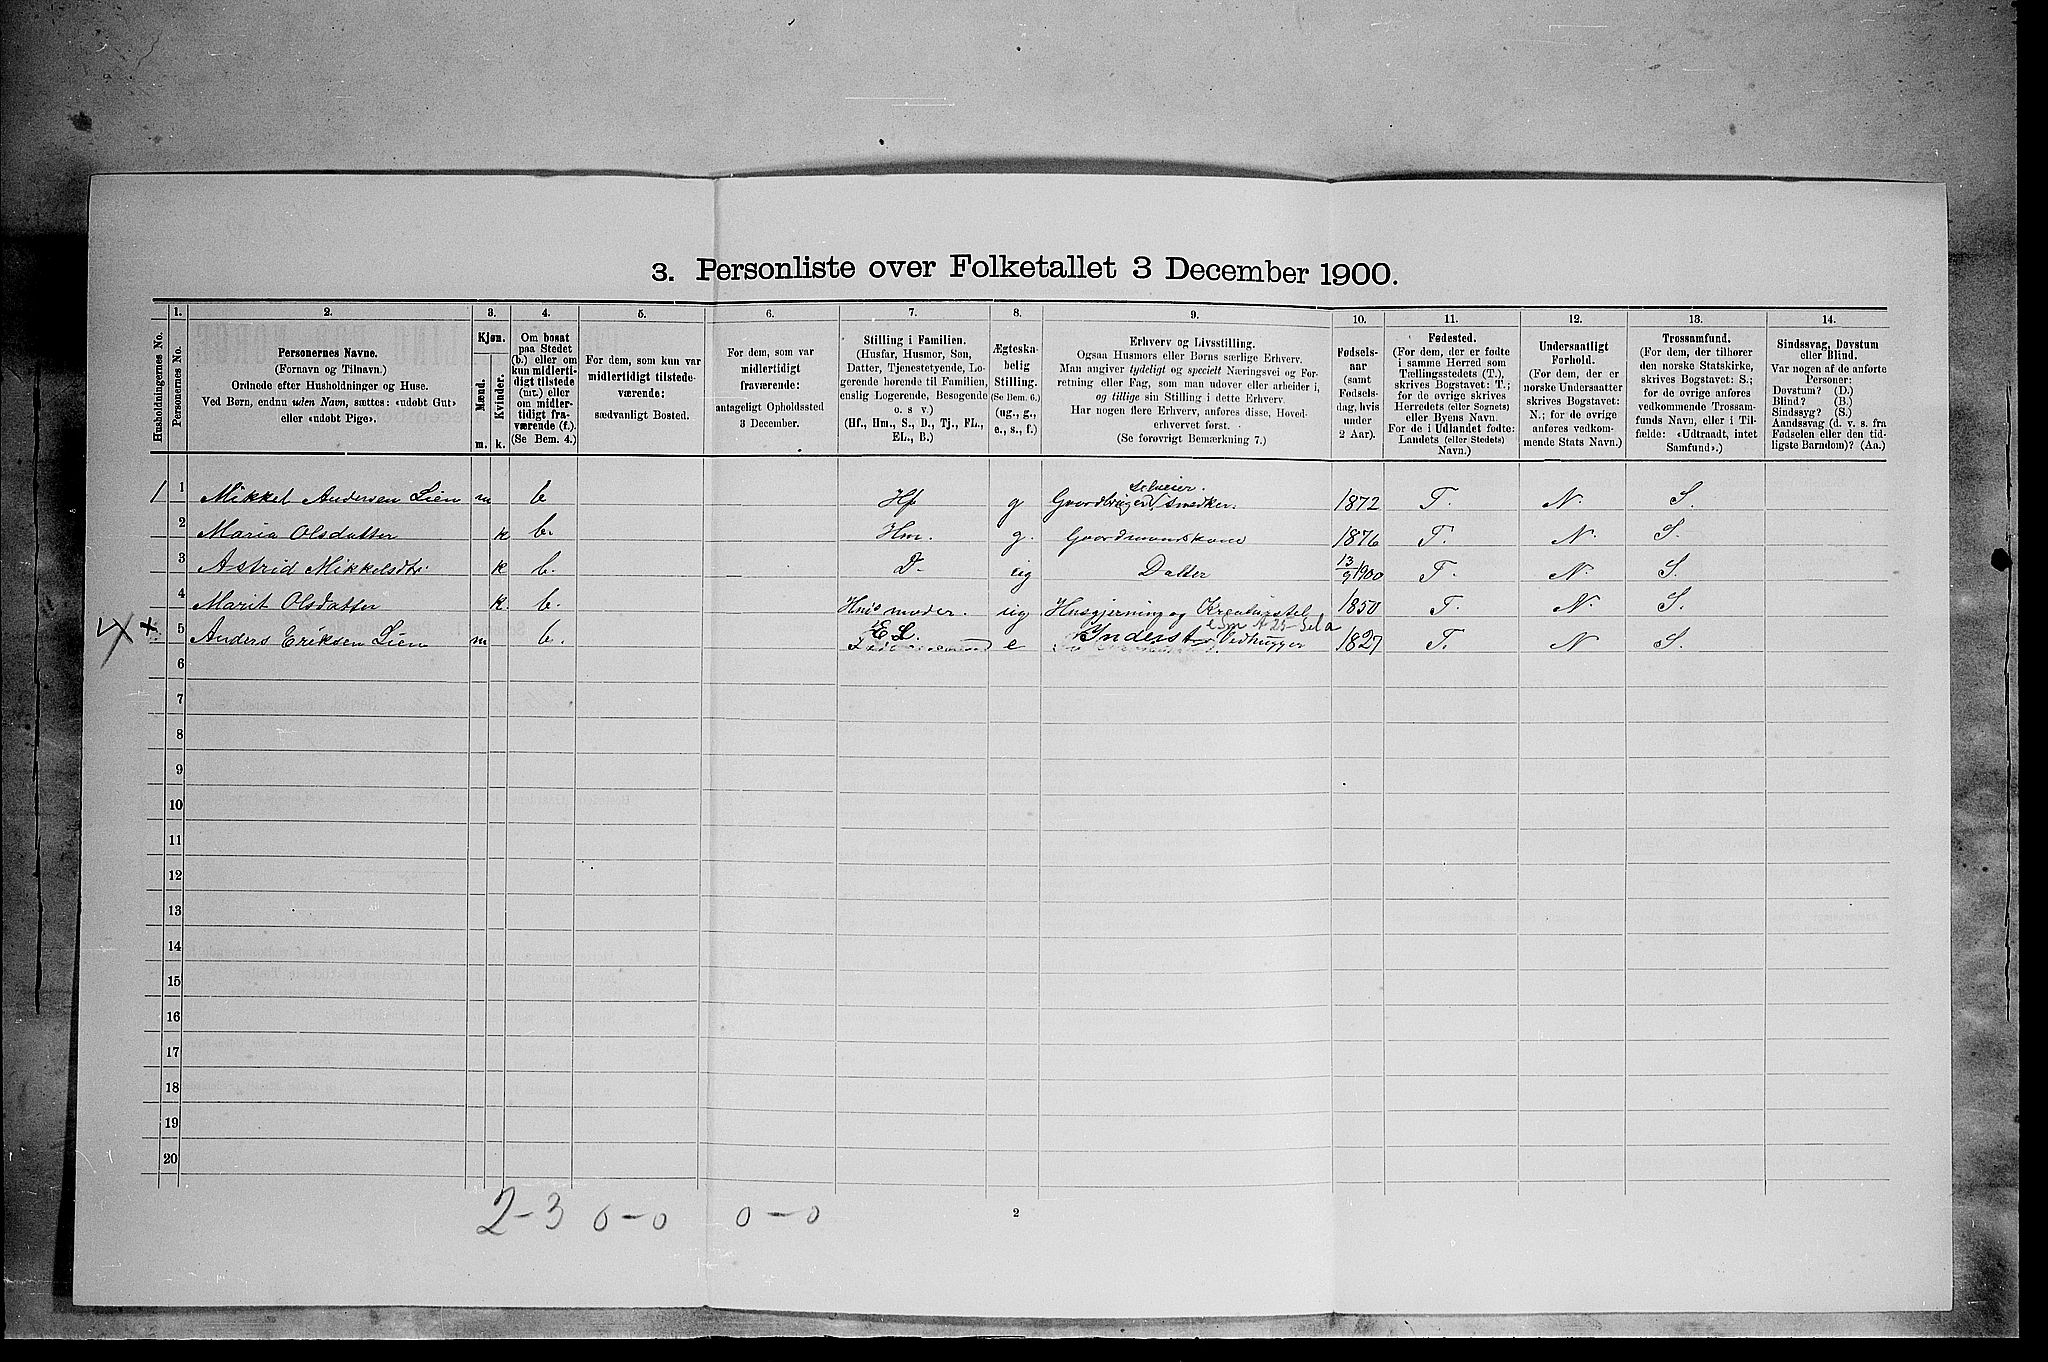 3. Personliste over Folketallet 3 December 1900.
1. 2. 3. 4. 5. 6. 7. 8. 9. 10. 11. 12. 13. 14.
Husholdningernes No.
Personernes No.
Personernes Navne.
(Fornavn og Tilnavn.)
Ordnede efter Husholdninger og Huse.
Ved Børn, endnu uden Navn, sættes: «udøbt Gut»
eller «udøbt Pige».
Kjøn.
Mænd.
Kvinder.
m. k.
Om bosat
paa Stedet
(b.) eller om
kun midlerti-
digt tilstede
(mt.) eller
om midler-
tidigt fra-
værende (f.).
(Se Bem. 4.)
For dem, som kun var
midlertidigt tilstede-
værende:
sædvanligt Bosted.
For dem, som var
midlertidigt
fraværende:
antageligt Opholdssted
3 December.
Stilling i Familien.
(Husfar, Husmor, Søn,
Datter, Tjenestetyende, Lo-
gerende hørende til Familien,
enslig Logerende, Besøgende
o. s v.)
(Hf., Hm., S., D., Tj., FL.,
EL., B.)
Ægteska-
belig
Stilling.
(Se Bem. 6.)
(ug., g.,
e., s., f.)
Erhverv og Livsstilling.
Ogsaa Husmors eller Børns særlige Erhverv.
Man angiver tydeligt og specielt Næringsvei og For-
retning eller Fag, som man udøver eller arbeider i,
og tillige sin Stilling i dette Erhverv.
Har nogen flere Erhverv, anføres disse, Hoved-
erhvervet først.
(Se forøvrigt Bemærkning 7.)
Fødsels-
aar
(samt
Fødsels-
dag, hvis
under
2 Aar).
Fødested.
(For dem, der er fødte
i samme Herred som
Tællingsstedets (T.),
skrives Bogstavet: T.;
for de øvrige skrives
Herredets (eller Sognets)
eller Byens Navn.
For de i Udlandet fødte:
Landets (eller Stedets)
Navn.)
Undersaatligt
Forhold.
(For dem, der er
norske Undersaatter
skrives Bogstavet:
N.; for de øvrige
anføres vedkom-
mende Stats Navn.)
Trossamfund.
(For dem, der tilhører
den norske Statskirke,
skrives Bogstavet: S.;
for de øvrige anføres
vedkommende Trossam-
funds Navn, eller i Til-
fælde: «Udtraadt, intet
Samfund».)
Sindssvag, Døvstum
eller Blind.
Var nogen af de anførte
Personer:
Døvstum? (D.)
Blind? (B.)
Sindssyg? (S.)
Aandssvag (d. v. s. fra
Fødselen eller den tid-
ligste Barndom)? (Aa.)
selveier.
1 1 Mikkel Andersen Lien m b Hf g Gaardbruger, Snedker. 1872 T. N. S.
2 Maria Olsdatter k b. Hm. g. Gaardmandskone 1876 T. N. S.
3 Astrid Mikkelsdtr. k b. D. ug Datter 13/9 1900 T. N. S.
4 Marit Olsdatter k. b. moder. ug Husgjerning og Kreaturstel 1850 T. N. S.
5 Anders Eriksen Lien m b. EL. e Inderst Vedhugger 1827 T. N S.
6
7
8
9
10
11
12
13
14
15
16
17
18
19
20
2-3 0-0 0-0
2